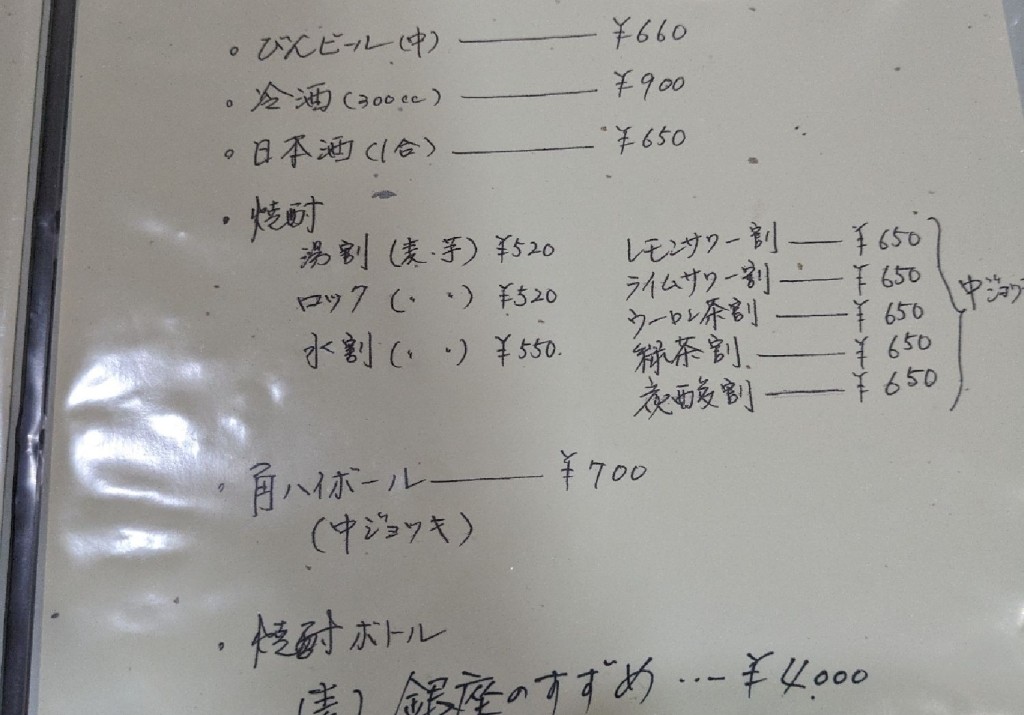 ・びんビール(中) ――― ¥660
・冷酒(300cc) ――― ¥900
・日本酒(1合) ――― ¥650
・焼酎
湯割(麦・芋) ¥520
ロック(・ ・) ¥520
水割(・ ・) ¥550.
レモンサワー割 ―― ¥650
ライムサワー割 ―― ¥650
ウーロン茶割 ―― ¥650
緑茶割. ―― ¥650
炭酸割 ―― ¥650
中ジョッ
・角ハイボール ――― ¥700
(中ジョッキ)
・焼酎ボトル
(麦) 銀座のすずめ …― ¥4.000